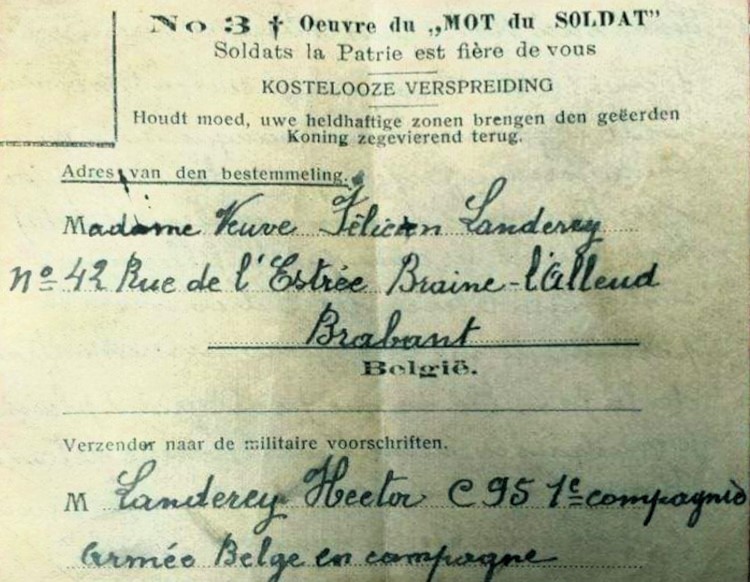 No 3 † Oeuvre du „MOT du SOLDAT”
Soldats la Patrie est fière de vous
KOSTELOOZE VERSPREIDING
Houdt moed, uwe heldhaftige zonen brengen den geëerden
Koning zegevierend terug.
Adres van den bestemmeling.
Madame Veuve Félicien Landerey
N° 42 Rue de l'Estrée Braine-l'Alleud
Brabant
België.
Verzender naar de militaire voorschriften.
M Landerey Hector C 95 1e compagnie
Armée Belge en campagne